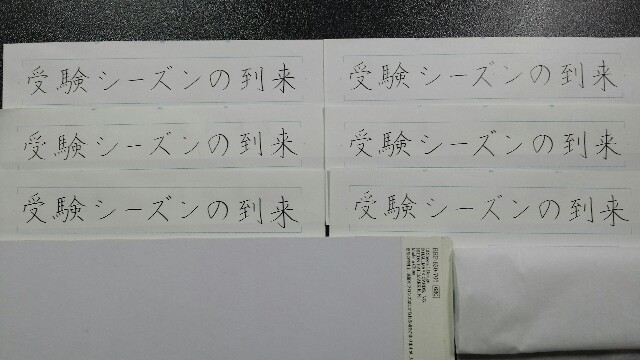 受験シーズンの到来
受験シーズンの到来
受験シーズンの到来
受験シーズンの到来
受験シーズンの到来
受験シーズンの到来